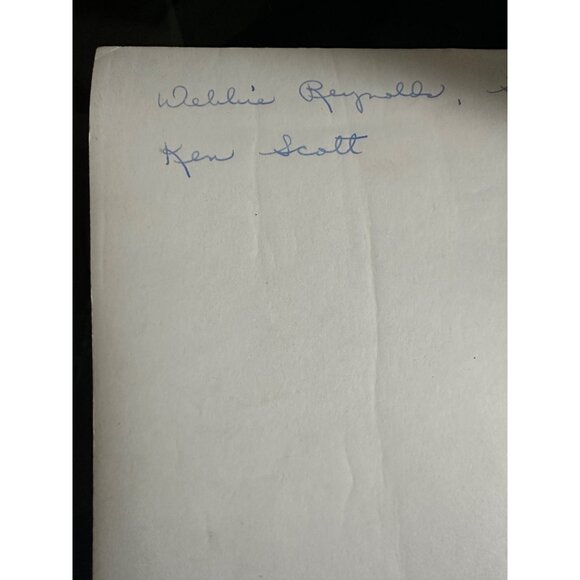 Debbie Reynolds,
Ken Scott